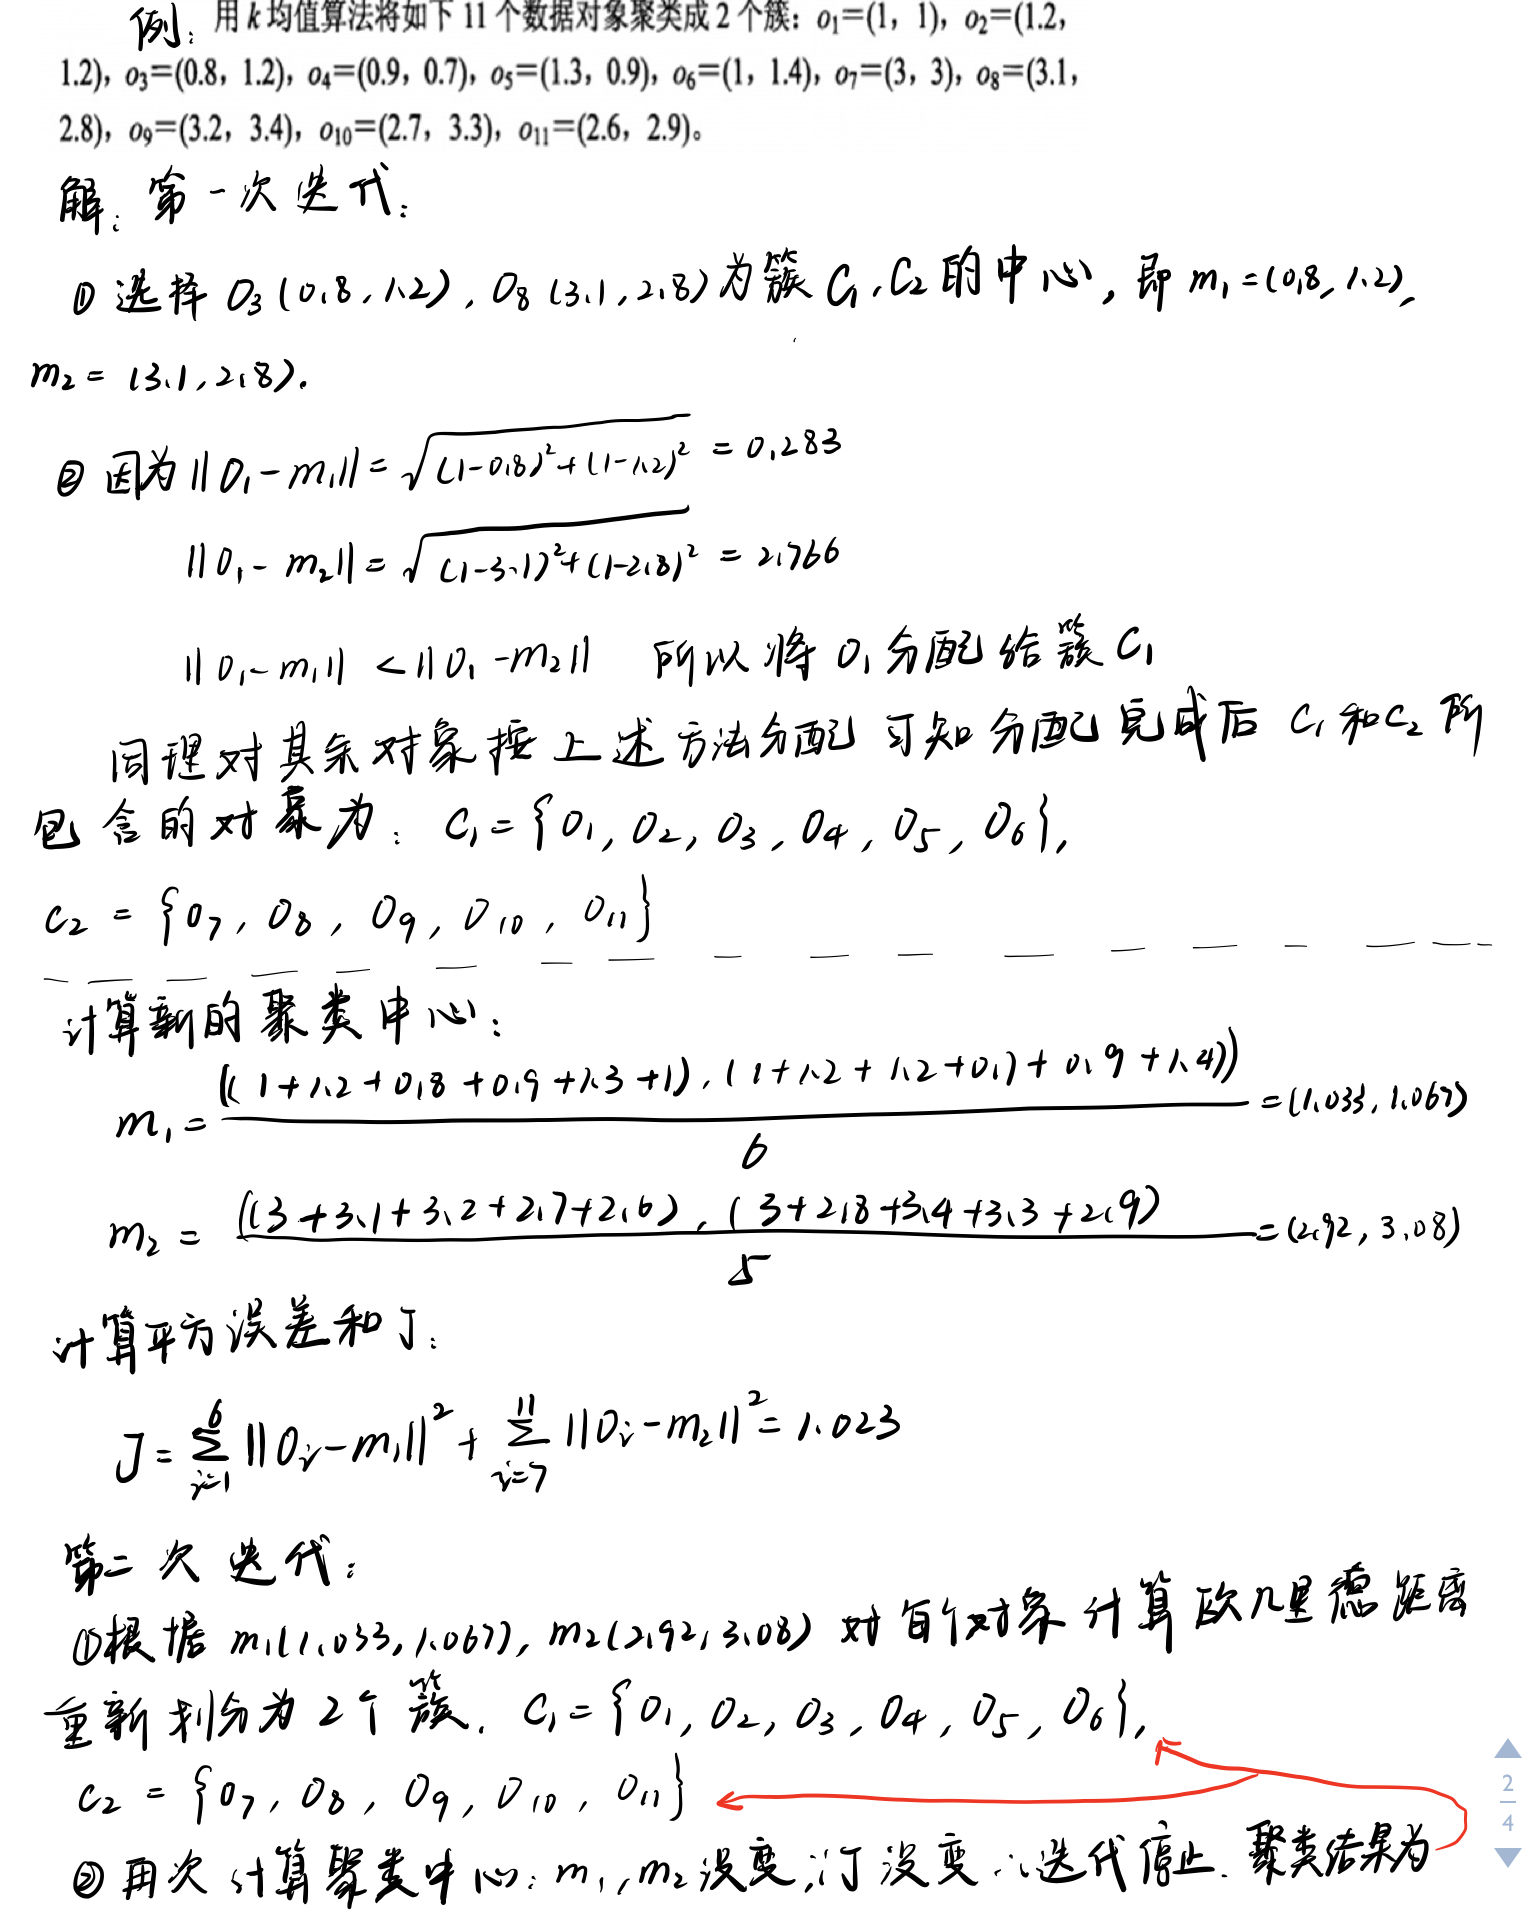 例：用 k 均值算法将如下 11 个数据对象聚类成 2 个簇：o₁=(1，1)，o₂=(1.2，
1.2)，o₃=(0.8，1.2)，o₄=(0.9，0.7)，o₅=(1.3，0.9)，o₆=(1，1.4)，o₇=(3，3)，o₈=(3.1，
2.8)，o₉=(3.2，3.4)，o₁₀=(2.7，3.3)，o₁₁=(2.6，2.9)。
解：第一次迭代：
① 选择 O₃(0.8,1.2), O₈(3.1,2.8)为簇 C₁,C₂的中心，即 m₁=(0.8,1.2),
m₂=(3.1,2.8).
② 因为||O₁-m₁||=√(1-0.8)²+(1-1.2)² = 0.283
||O₁-m₂||=√(1-3.1)²+(1-2.8)² = 2.766
||O₁-m₁|| < ||O₁-m₂|| 所以将 O₁分配给簇 C₁
同理对其余对象按上述方法分配 可知分配完成后 C₁和C₂所
包含的对象为：C₁={O₁, O₂, O₃, O₄, O₅, O₆},
C₂ = {O₇, O₈, O₉, O₁₀, O₁₁}
计算新的聚类中心：
m₁= ((1+1.2+0.8+0.9+1.3+1),(1+1.2+1.2+0.7+0.9+1.4)) / 6 =(1.033,1.067)
m₂ = ((3+3.1+3.2+2.7+2.6),(3+2.8+3.4+3.3+2.9) / 5 =(2.92,3.08)
计算平方误差和J：
J=∑ᵢ₌₁⁶||Oᵢ-m₁||²+∑ᵢ₌₇¹¹||Oᵢ-m₂||²=1.023
第二次迭代：
①根据 m₁(1.033,1.067), m₂(2.92,3.08) 对每个对象计算欧几里德距离
重新划分为2个簇. C₁={O₁, O₂, O₃, O₄, O₅, O₆},
C₂ = {O₇, O₈, O₉, O₁₀, O₁₁}
②再次计算聚类中心：m₁,m₂没变,∴J没变 ∴迭代停止. 聚类结果为
2
4